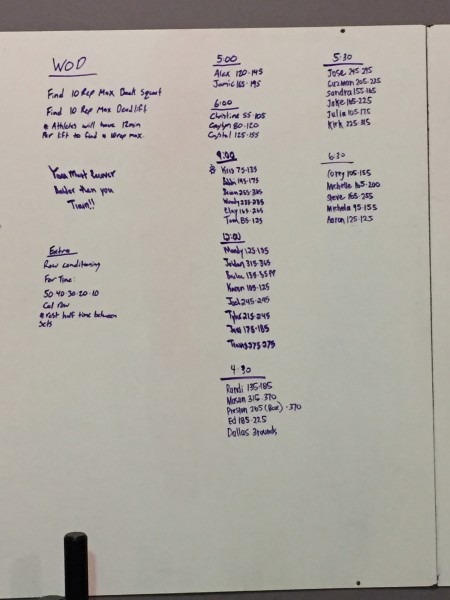 WOD
Find 10 Rep Max Back Squat
Find 10 Rep Max Deadlift
* Athletes will have 12min
Per lift to find a 10 rep max.
You Must Recover
Harder then you
Train!!
Extra
Row Conditioning
For Time:
50-40-30-20-10
Cal row
* rest half time between
Sets
5:00
Alex 120-145
Jamie 165-195
6:00
Christine 55-105
Caitlyn 80-120
Crystal 125-155
9:00
Kris 75-135
195-175
Brian 255-335
Woody 235-285
Clay 165-265
Tom 85-125
12:00
Mandy 125-135
Jordan 315-365
135-55
Karen 105-125
Joel 245-295
Tyler 215-245
Jess 175-185
Travis 275-275
4:30
Randi 135-185
Mason 315-370
Preston 265 (Box) -370
Ed 185-225
Dallas 3 rounds
5:30
Jose 245-295
Guzman 205-225
Sandra 155-165
Jake 165-225
Julia 105-175
Kirk 225-315
6:30
Corey 105-155
Michelle 165-200
Steve 165-255
Michela 95-155
Aaron 125-125